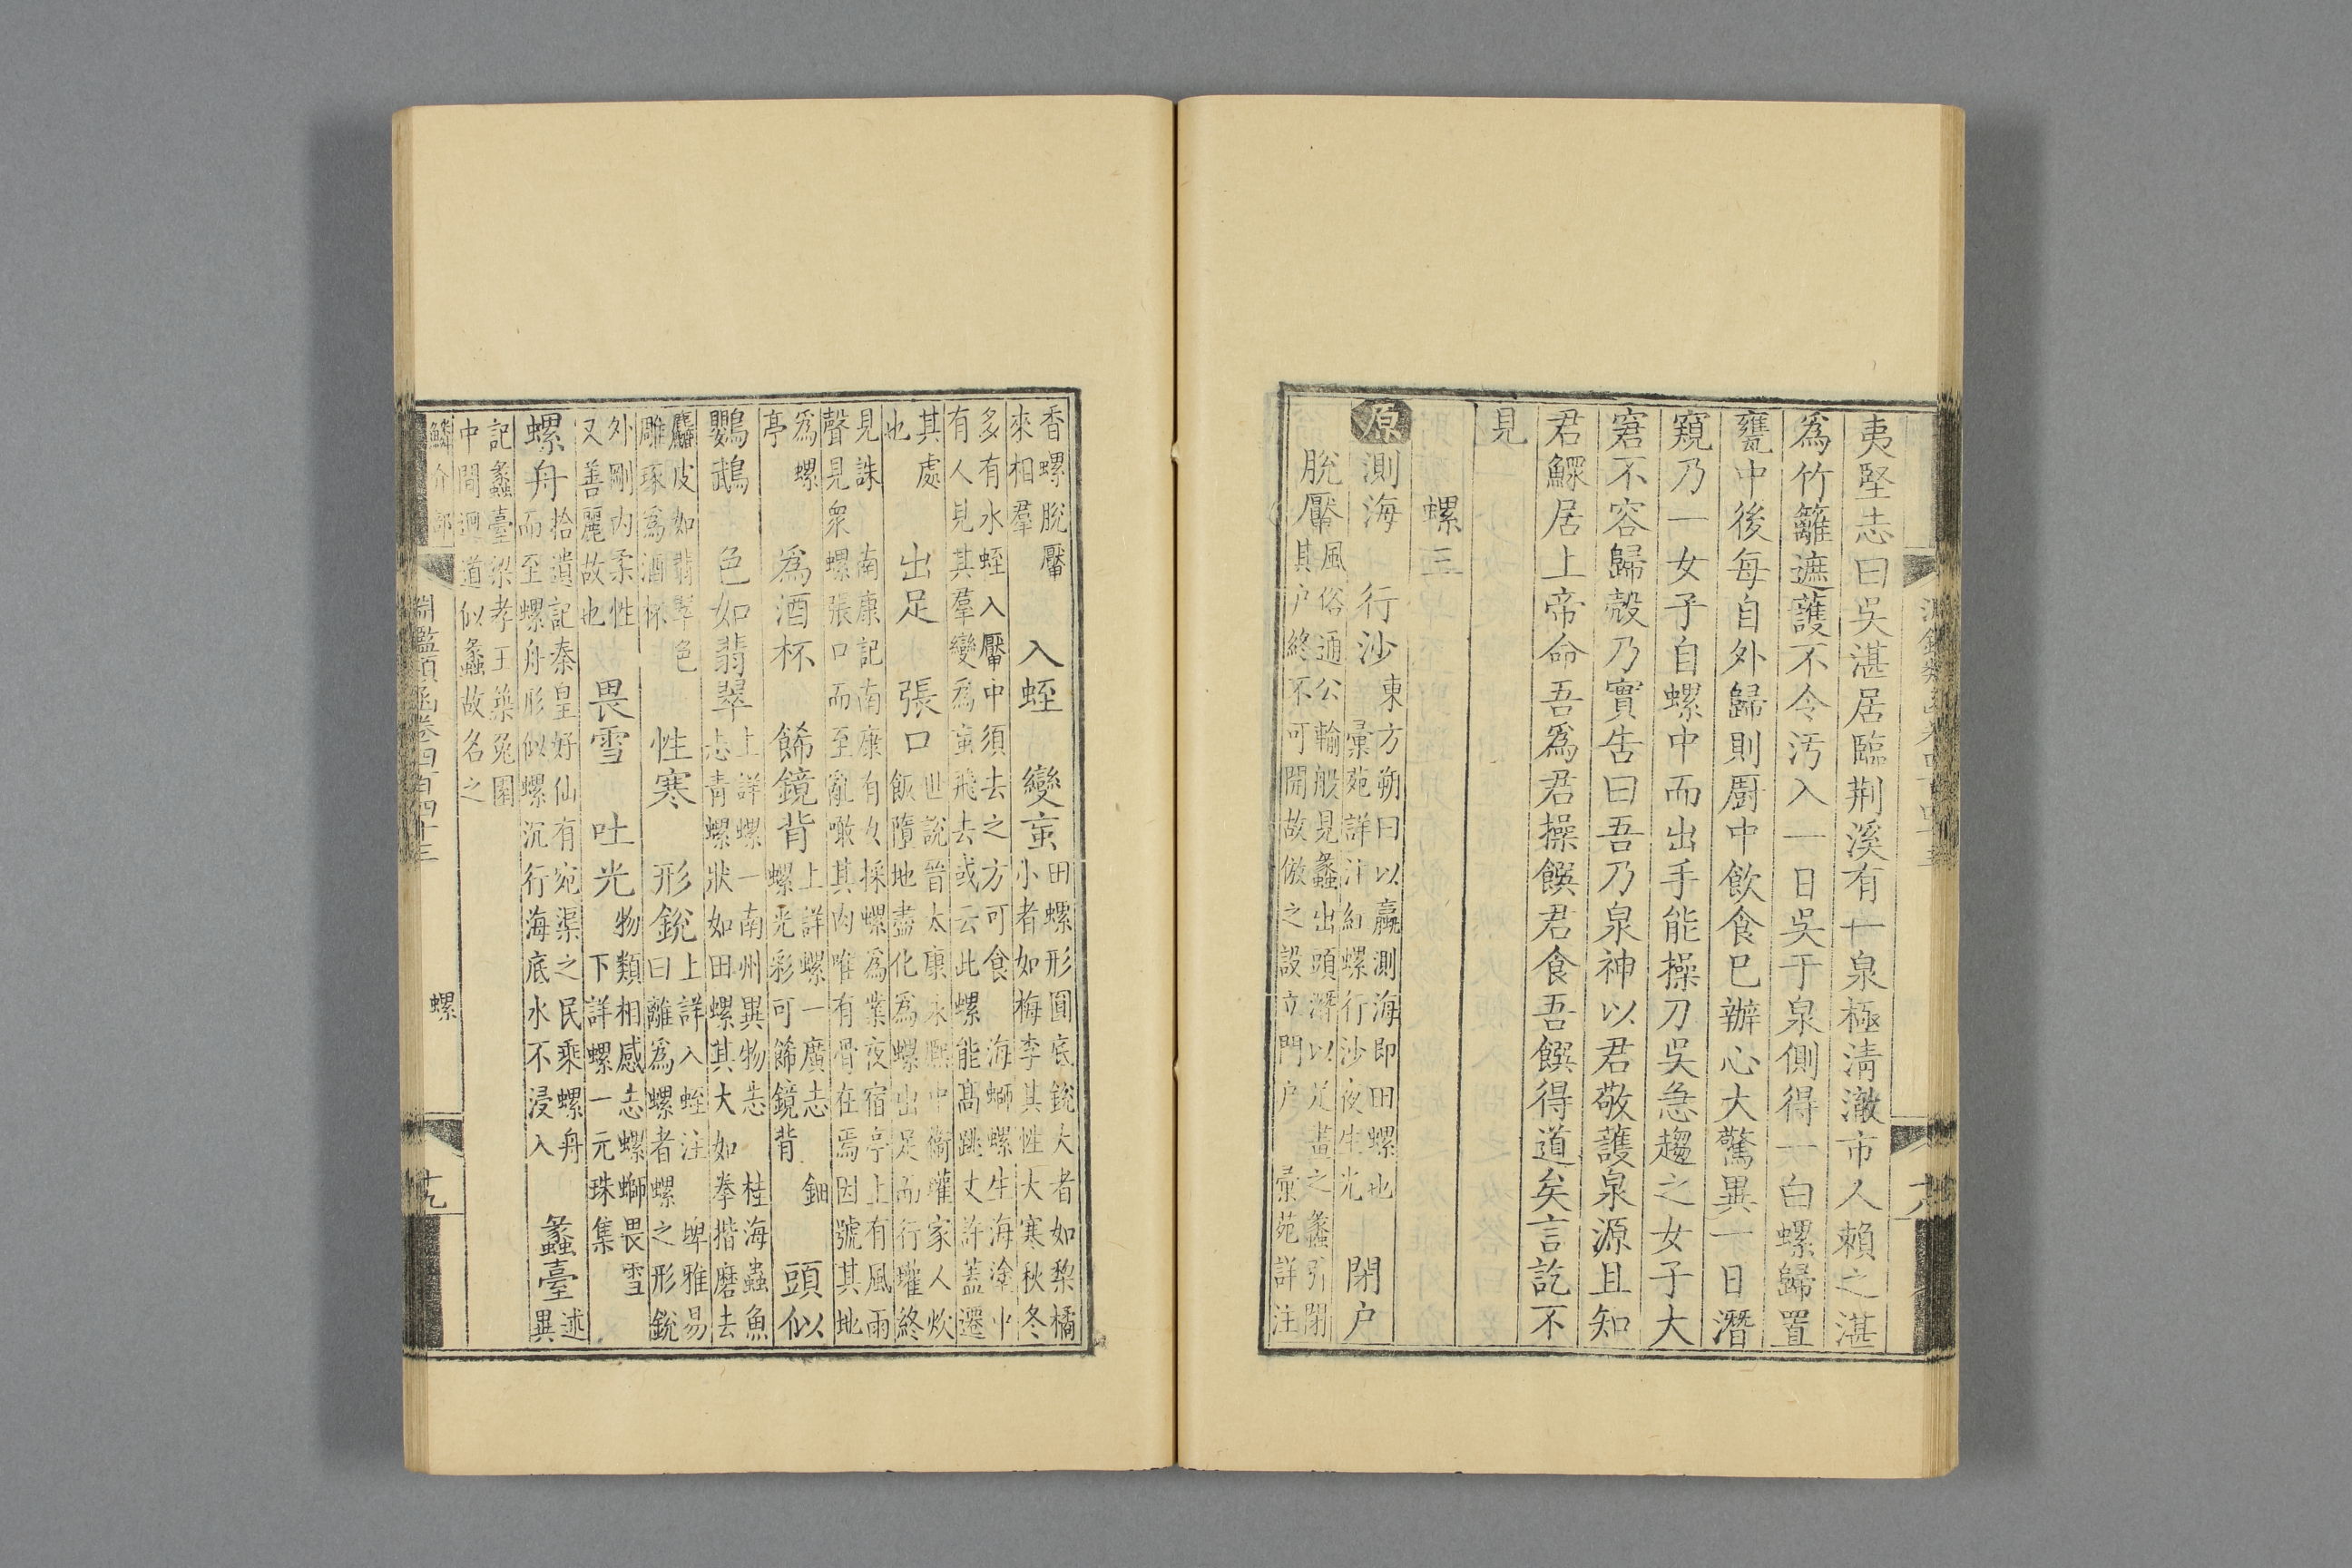 夷堅志曰吳湛居臨荆溪有一泉極淸澈市人賴之湛
爲竹籬遮護不令汚入一日吳于泉側得一白螺歸置
甕中後每自外歸則廚中飮食已辦心大驚異一日潛
窺乃一女子自螺中而出手能操刀吳急趨之女子大
窘不容歸殼乃實告曰吾乃泉神以君敬護泉源且知
君鰥居上帝命吾爲君操饌君食吾饌得道矣言訖不
見
螺三
原 測海 行沙 東方朔曰以蠃測海即田螺也
彙苑詳注紅螺行沙夜生光 閉户
脫黶 風俗通公輸般見蠡出頭潛以足畫之蠡引閉
其户終不可開故倣之設立門户 彙苑詳注
香螺脫黶
來相羣 入蛭 變䖟 田螺形圓底銳大者如梨橘
小者如梅李其性大寒秋冬
多有水蛭入黶中須去之方可食 海螄螺生海塗中
有人見其羣變爲䖟飛去或云此螺能髙跳丈許蓋遷
其處
也 出足 張口 世說晉太康永熙中衞瓘家人炊
飯墮地盡化爲螺出足而行瓘終
見誅 南康記南康有女採螺爲業夜宿亭上有風雨
聲見衆螺張口而至亂噉其肉唯有骨在焉因號其地
爲螺
亭 爲酒杯 飾鏡背 上詳螺一廣志 鈿
螺光彩可飾鏡背 頭似
鸚鵡 色如翡翠 上詳螺一南州異物志 桂海蟲魚
志靑螺狀如田螺其大如拳揩磨去
麤皮如翡翠色
雕琢爲酒杯 性寒 形銳 上詳入蛭注 埤雅易
曰離爲螺者螺之形銳
外剛內柔性
又善麗故也 畏雪 吐光 物類相感志螺螄畏雪
下詳螺一元珠集
螺舟 拾遺記秦皇好仙有宛渠之民乘螺舟
而至螺舟形似螺沉行海底水不浸入 蠡臺 述
異
記蠡臺梁孝王築兎園
中間迴道似蠡故名之
鱗介部
淵鑑類函卷四百四十三
螺